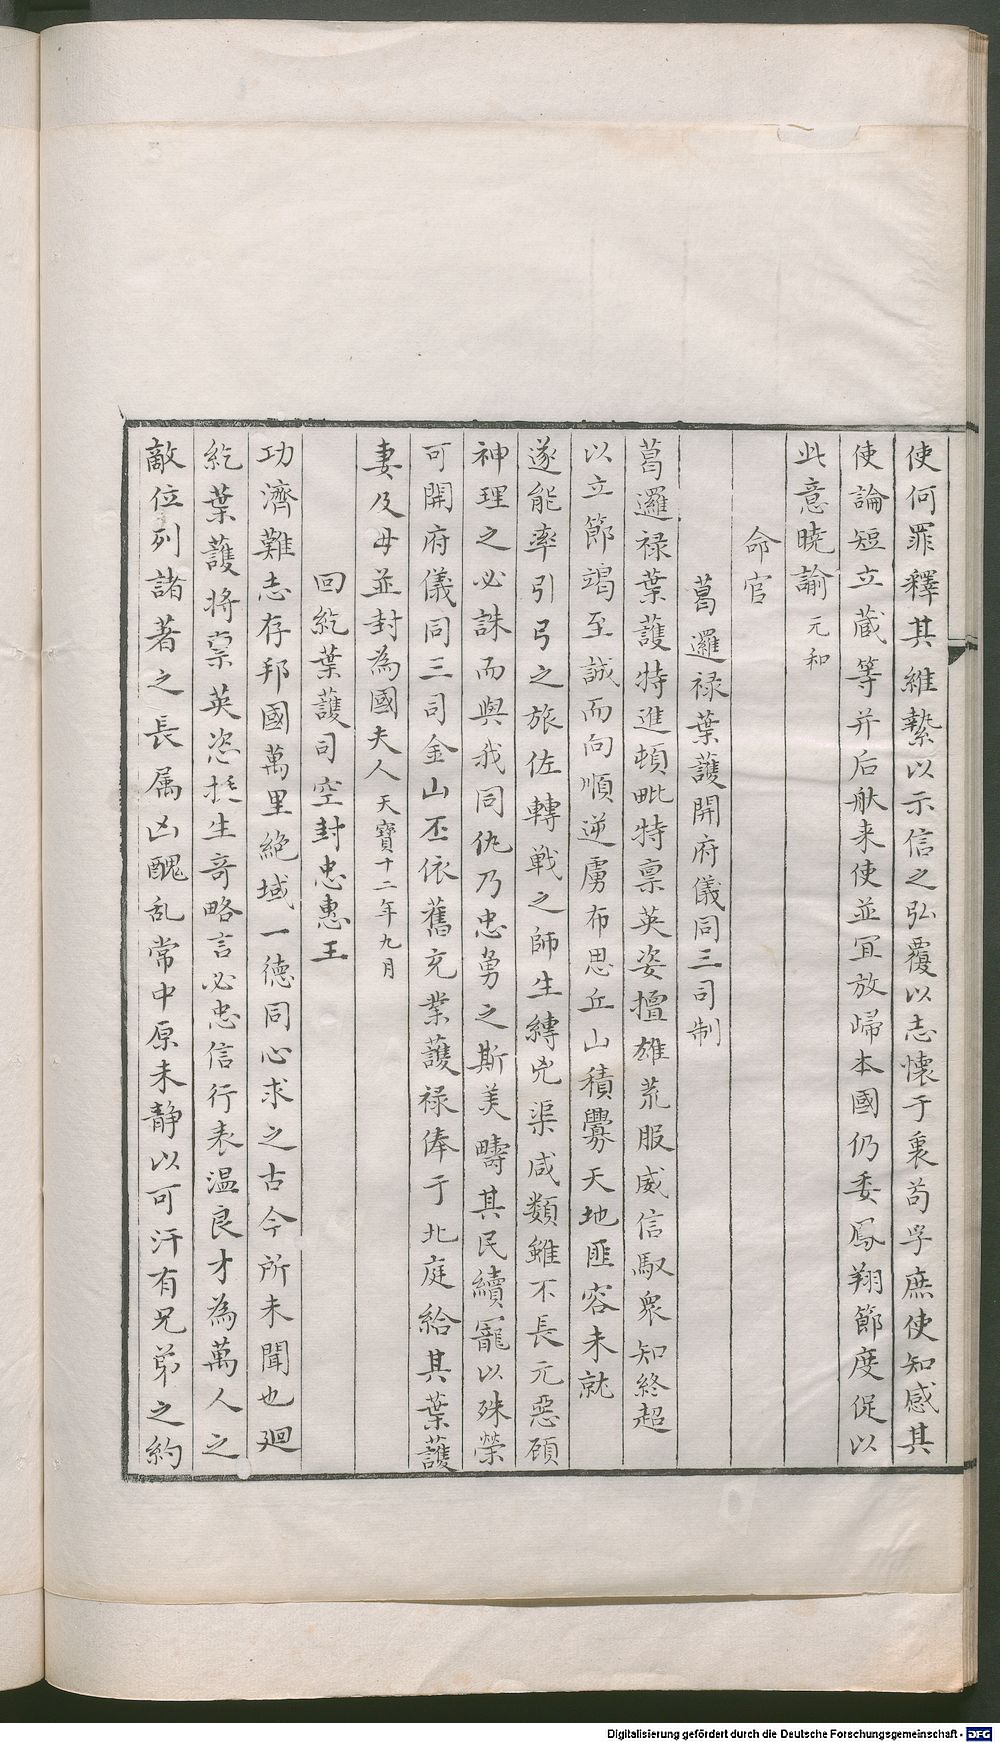 使何罪釋其維縶以示信之弘覆以志懷于裏苟孚庶使知感其
使論短立蔵等并后舩来使並冝放歸本國仍委鳳翔節度促以
此意暁諭元和
命官
葛邏禄葉護開府儀同三司制
葛邏禄葉護特進頓毗特禀英姿擅雄荒服威信馭衆知終超
以立節竭至誠而向順逆虜布思丘山積釁天地匪容未就
遂能率引弓之旅佐轉戦之師生縛兇渠咸類雖不長元惡頋
神理之必誅而與我同仇乃忠勇之斯美疇其民續寵以殊榮
可開府儀同三司金山丕依舊充業護禄俸于北庭給其葉護
妻及母並封為國夫人天寶十二年九月
回紇葉護司空封忠惠王
功濟難志存邦國萬里絶域一德同心求之古今所未聞也廻
紇葉護将禀英恣挺生竒略言必忠信行表温良才為萬人之
敵位列諸著之長属凶醜乱常中原未静以可汗有兄弟之約
Digitalisierung gefördert durch die Deutsche Forschungsgemeinschaft - DFG